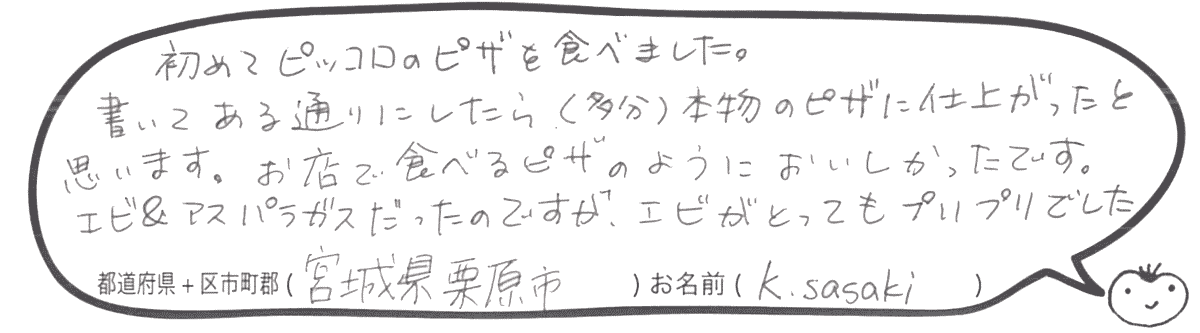 初めてピッコロのピザを食べました。
書いてある通りにしたら(多分)本物のピザに仕上がったと
思います。お店で食べるピザのようにおいしかったです。
エビ&アスパラガスだったのですが、エビがとってもプリプリでした
都道府県+区市町郡(宮城県栗原市)お名前(K.sasaki)